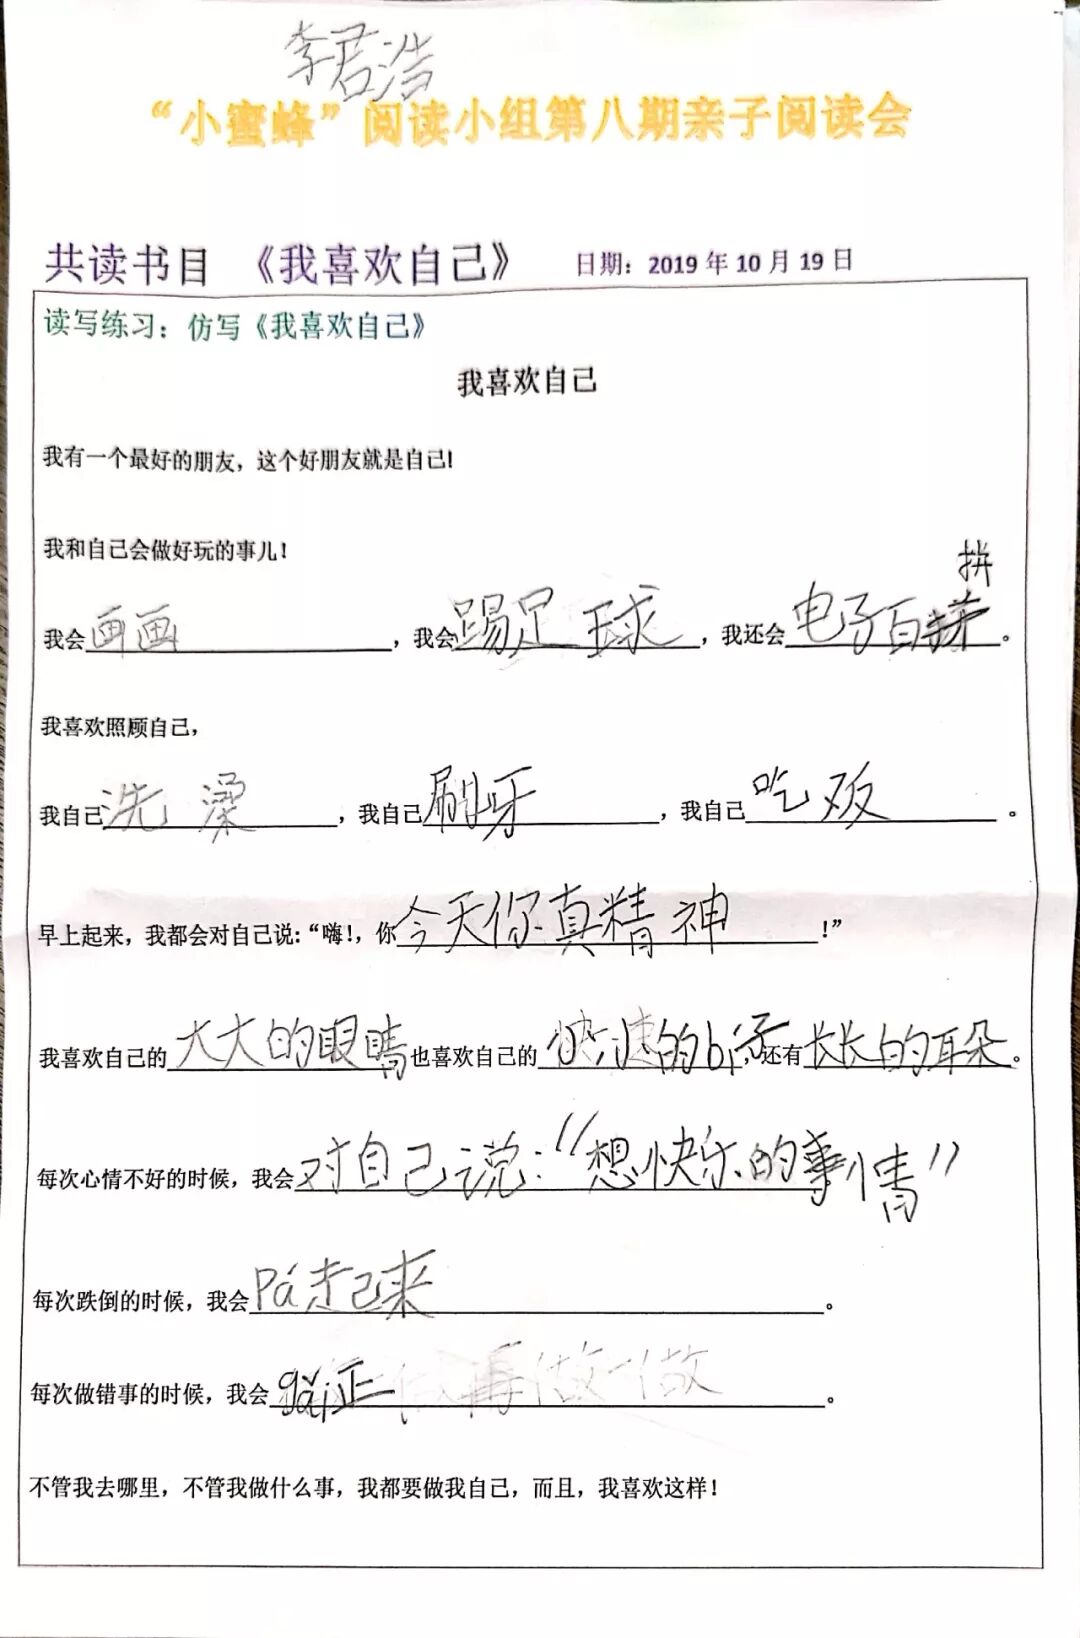 李君浩
“小蜜蜂”阅读小组第八期亲子阅读会
共读书目 《我喜欢自己》 日期：2019年10月19日
读写练习：仿写《我喜欢自己》
我喜欢自己
我有一个最好的朋友，这个好朋友就是自己!
我和自己会做好玩的事儿!
拼
我会画画，我会踢足球，我还会电子百拼。
我喜欢照顾自己，
我自己洗澡，我自己刷牙，我自己吃饭。
早上起来，我都会对自己说:“嗨!，你今天你真精神!”
我喜欢自己的大大的眼睛也喜欢自己的的bí子，还有长长的耳朵。
每次心情不好的时候，我会对自己说：“想快乐的事情”
每次跌倒的时候，我会Pá起来。
每次做错事的时候，我会gǎi正。
不管我去哪里，不管我做什么事，我都要做我自己，而且，我喜欢这样!